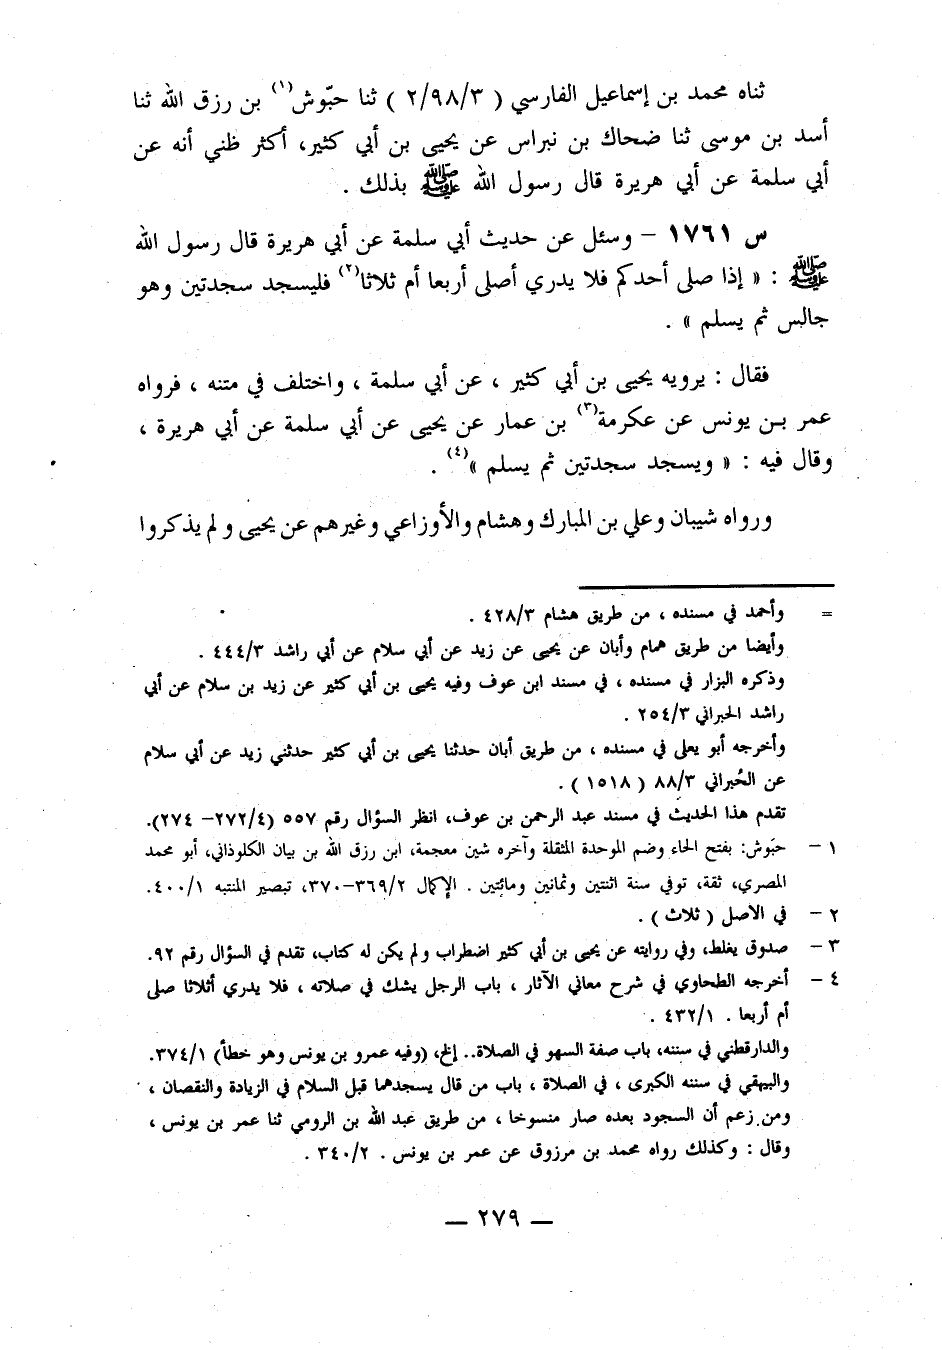 ثناه محمد بن إسماعيل الفارسي ( ٢/٩٨/٣ ) ثنا حبّوش(١) بن رزق الله ثنا
أسد بن موسى ثنا ضحاك بن نبراس عن يحيى بن أبي كثير، أكثر ظني أنه عن
أبي سلمة عن أبي هريرة قال رسول الله ﷺ بذلك .
س ١٧٦١ – وسئل عن حديث أبي سلمة عن أبي هريرة قال رسول الله
ﷺ : « إذا صلى أحدكم فلا يدري أصلى أربعا أم ثلاثا(٢) فليسجد سجدتين وهو
جالس ثم يسلم » .
فقال : يرويه يحيى بن أبي كثير ، عن أبي سلمة ، واختلف في متنه ، فرواه
عمر بن يونس عن عكرمة(٣) بن عمار عن يحيى عن أبي سلمة عن أبي هريرة ،
وقال فيه : « ويسجد سجدتين ثم يسلم »(٤) .
ورواه شيبان وعلي بن المبارك وهشام والأوزاعي وغيرهم عن يحيى ولم يذكروا
= وأحمد في مسنده ، من طريق هشام ٤٢٨/٣ .
وأيضا من طريق همام وأبان عن يحيى عن زيد عن أبي سلام عن أبي راشد ٤٤٤/٣ .
وذكره البزار في مسنده ، في مسند ابن عوف وفيه يحيى بن أبي كثير عن زيد بن سلام عن أبي
راشد الحبراني ٢٥٤/٣ .
وأخرجه أبو يعلى في مسنده ، من طريق أبان حدثنا يحيى بن أبي كثير حدثني زيد عن أبي سلام
عن الحُبراني ٨٨/٣ ( ١٥١٨ ) .
تقدم هذا الحديث في مسند عبد الرحمن بن عوف، انظر السؤال رقم ٥٥٧ (٢٧٢/٤– ٢٧٤).
١ – حبّوش: بفتح الحاء وضم الموحدة المثقلة وآخره شين معجمة، ابن رزق الله بن بيان الكلوذاني، أبو محمد
المصري، ثقة، توفي سنة اثنتين وثمانين ومائتين . الإكمال ٣٦٩/٢–٣٧٠، تبصير المنتبه ٤٠٠/١.
٢ – في الأصل ( ثلاث ) .
٣ – صدوق يغلط، وفي روايته عن يحيى بن أبي كثير اضطراب ولم يكن له كتاب، تقدم في السؤال رقم ٩٢.
٤ – أخرجه الطحاوي في شرح معاني الآثار ، باب الرجل يشك في صلاته ، فلا يدري أثلاثا صلى
أم أربعا . ٤٣٢/١ .
والدارقطني في سننه، باب صفة السهو في الصلاة.. إلخ، (وفيه عمرو بن يونس وهو خطأ) ٣٧٤/١.
والبيهقي في سننه الكبرى ، في الصلاة ، باب من قال يسجدهما قبل السلام في الزيادة والنقصان ،
ومن زعم أن السجود بعده صار منسوخا ، من طريق عبد الله بن الرومي ثنا عمر بن يونس ،
وقال : وكذلك رواه محمد بن مرزوق عن عمر بن يونس . ٣٤٠/٢ .
— ٢٧٩ —